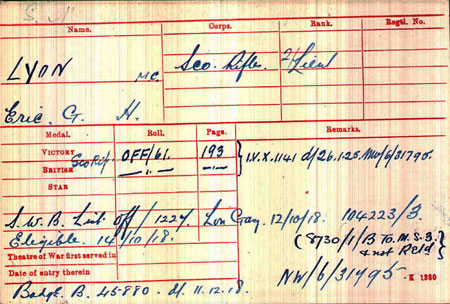 S.
Name.
Corps.
Rank.
Regtl. No.
LYON M.C.
Sco. Rifles. 2/Lieut
Eric G. H.
Medal.
Roll.
Page.
Remarks.
VICTORY Sco Rif OFF/61. 193
BRITISH —..— —..—
I.V.X.1141 d/26.1.25 NW/6/31795.
STAR
S.W.B. List. Off/1227. Lon Gaz. 12/10/18. 104223/3.
Eligible. 14/10/18.
(8730/1/B To M.S.3. & not Retd)
Theatre of War first served in
Date of entry therein
NW/6/31795
K 1380
Badge B. 45880 - d. 11.12.18.